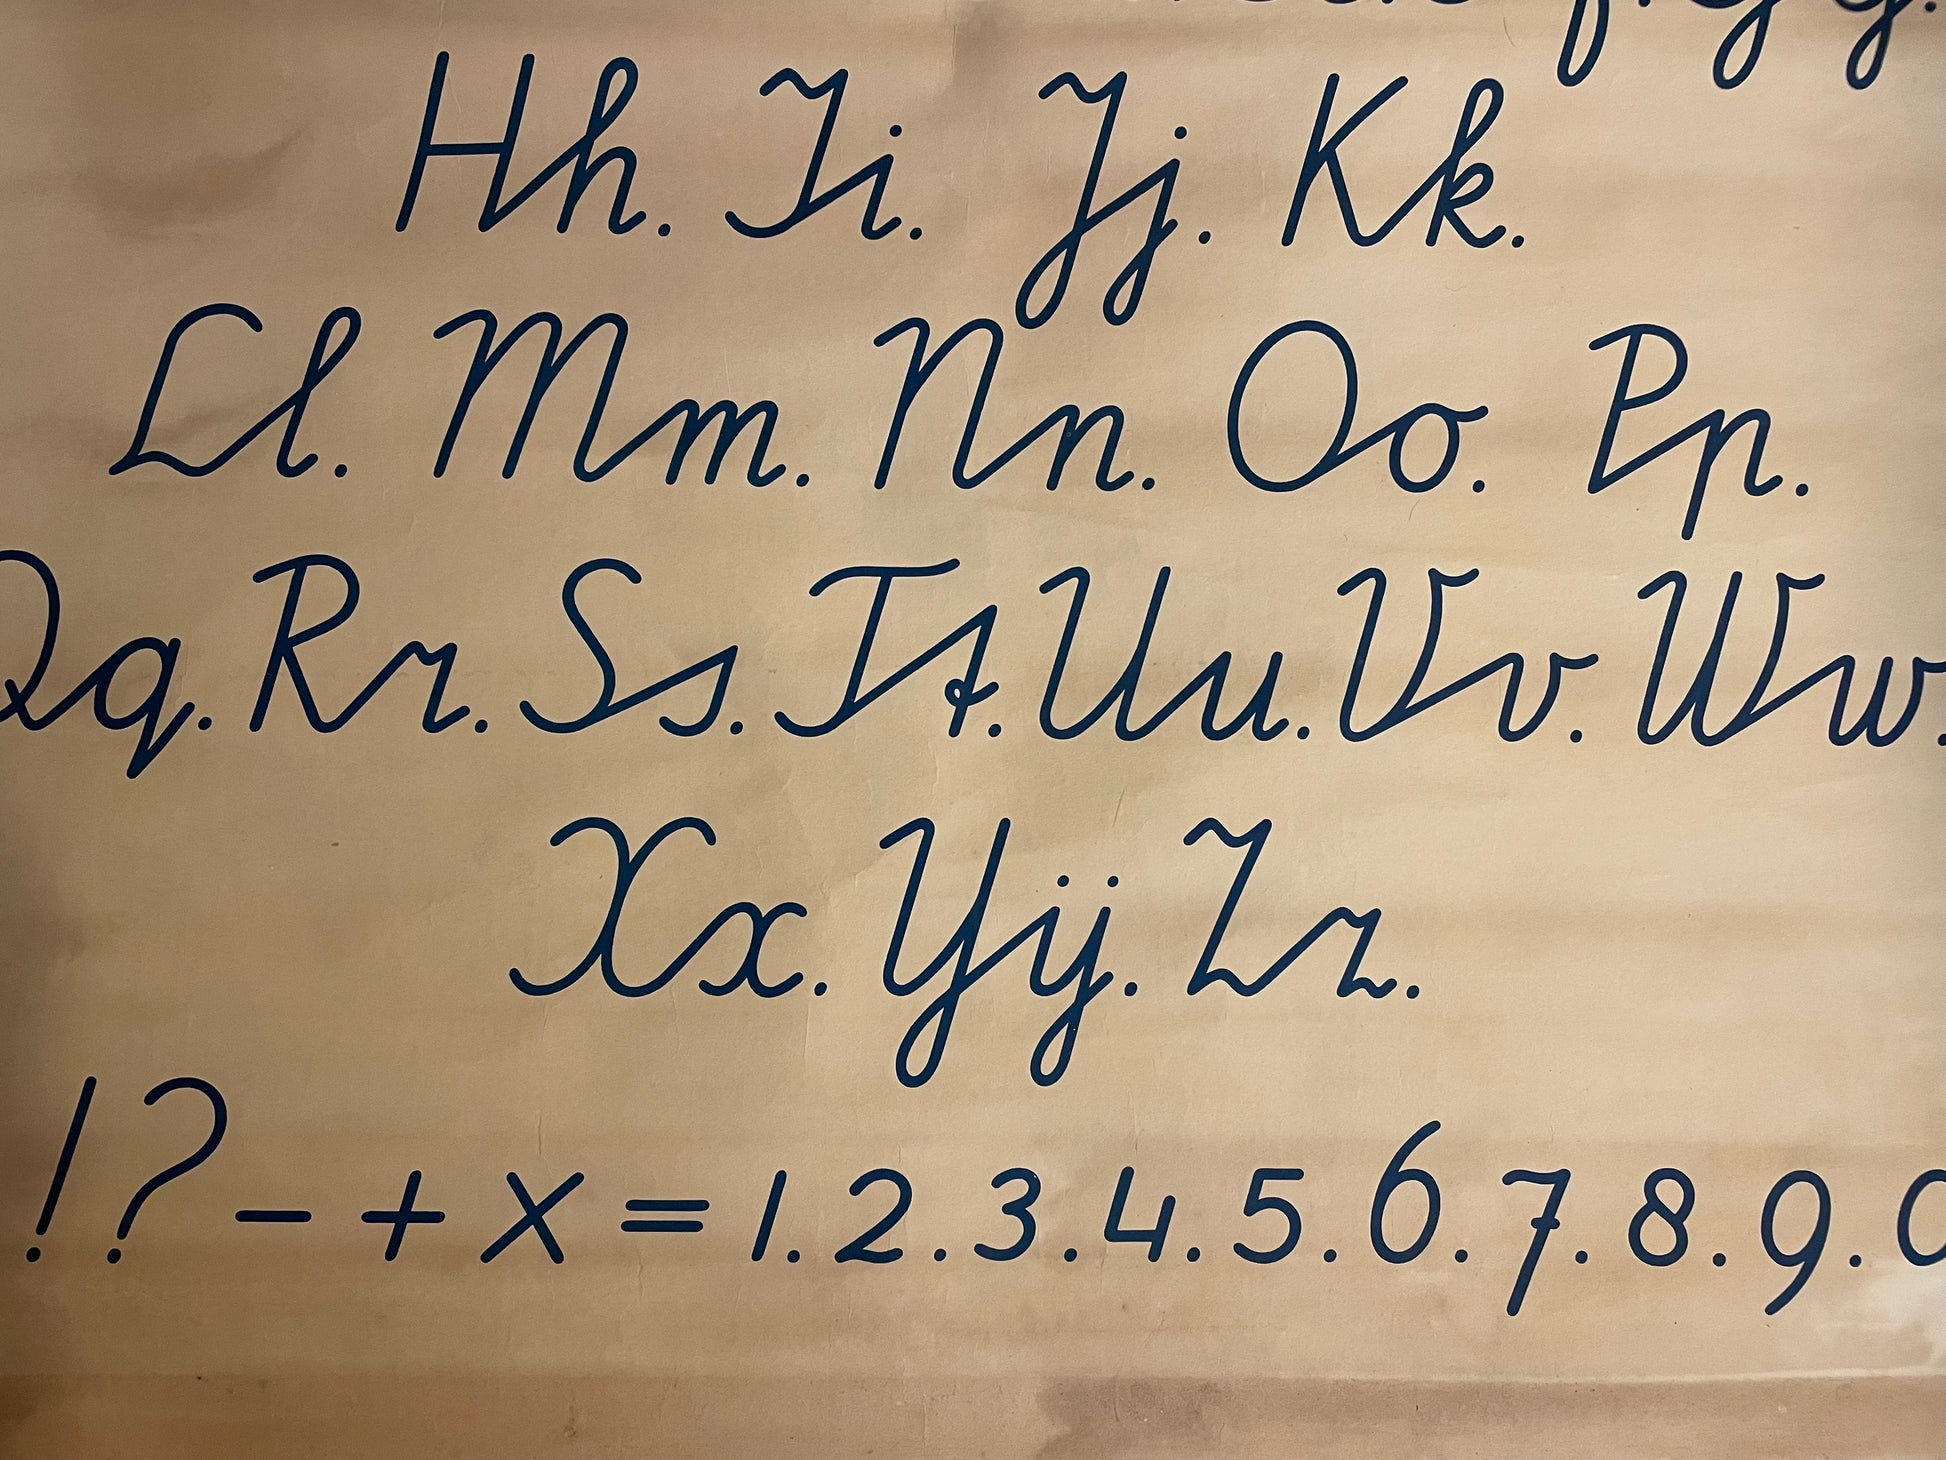 Hh. Ii. Jj. Kk.
Ll. Mm. Nn. Oo. Pp.
Qq. Rr. Ss. Tt. Uu. Vv. Ww.
Xx. Yÿ. Zz.
! ? - + x = 1. 2. 3. 4. 5. 6. 7. 8. 9. 0